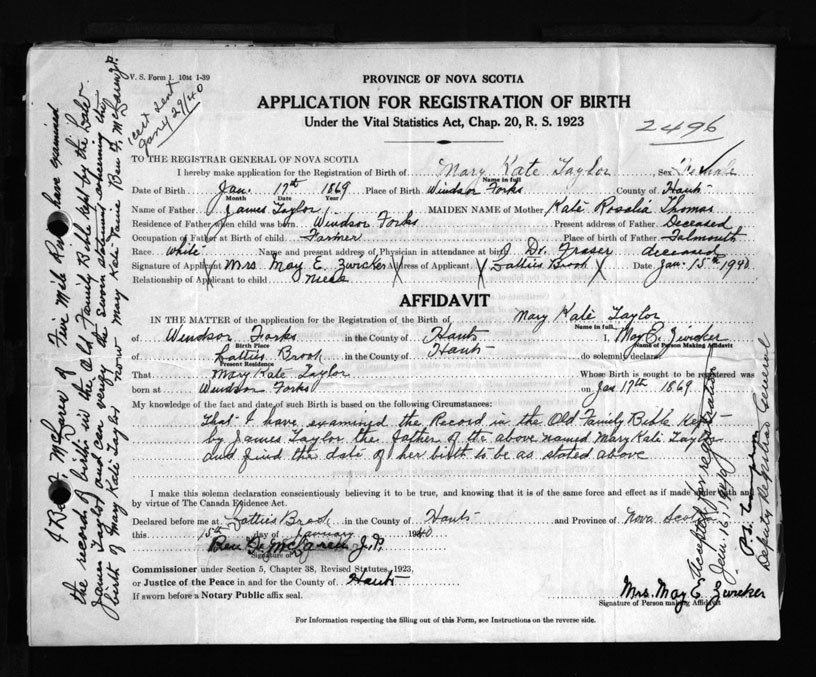 V. S. Form 1. 10M 1-39
PROVINCE OF NOVA SCOTIA
APPLICATION FOR REGISTRATION OF BIRTH
Under the Vital Statistics Act, Chap. 20, R. S. 1923
2496
cert sent
Jany 29/40
TO THE REGISTRAR GENERAL OF NOVA SCOTIA
I hereby make application for the Registration of Birth of Mary Kate Taylor, Sex Female
Name in full
Date of Birth Jan. 17th 1869 Place of Birth Windsor Forks County of Hants
Month Date Year
Name of Father James Taylor MAIDEN NAME of Mother Kate Rosalia Thomas
Residence of Father when child was born Windsor Forks Present address of Father Deceased
Occupation of Father at Birth of child Farmer Place of birth of Father Falmouth
Race White Name and present address of Physician in attendance at birth Dr. Fraser deceased
Signature of Applicant Mrs May E. Zwicker Address of Applicant Latties Brook Date Jan. 15th 1940
Relationship of Applicant to child Niece
AFFIDAVIT
IN THE MATTER of the application of the Registration of the Birth of Mary Kate Taylor
Name in full
of Windsor Forks in the County of Hants I, May E. Zwicker
Birth Place
Name of Person Making Affidavit
of Latties Brook in the County of Hants do solemnly declare
Present Residence
That Mary Kate Taylor Whose Birth is sought to be registered was
born at Windsor Forks on Jan 17th 1869
My knowledge of the fact and date of such Birth is based on the following Circumstances:
That I have examined the Record in the Old Family Bible Kept
by James Taylor the father of the above named Mary Kate Taylor
and find the date of her birth to be as stated above
I make this solemn declaration conscientiously believing it to be true, and knowing that it is of the same force and effect as if made under oath and
by virtue of The Canada Evidence Act.
Declared before me at Latties Brook in the County of Hants and Province of Nova Scotia
this 15th day of January 1940
Ben D. McLaren J.P.
Signature of
Commissioner under Section 5, Chapter 38, Revised Statutes, 1923,
or Justice of the Peace in and for the County of Hants
If sworn before a Notary Public affix seal.
Mrs. May E. Zwicker
Signature of Person making Affidavit
For Information respecting the filling out of this Form, see Instructions on the reverse side.
I Ben D. McLaren of Five Mile River have examined
the record of birth in the Old Family Bible kept by the late
James Taylor and can verify the sworn statement concerning the
birth of Mary Kate Taylor now Mary Kate Ben D. McLaren J.P.
Accepted for registration
Jan. 16, 1940
Deputy Registrar General